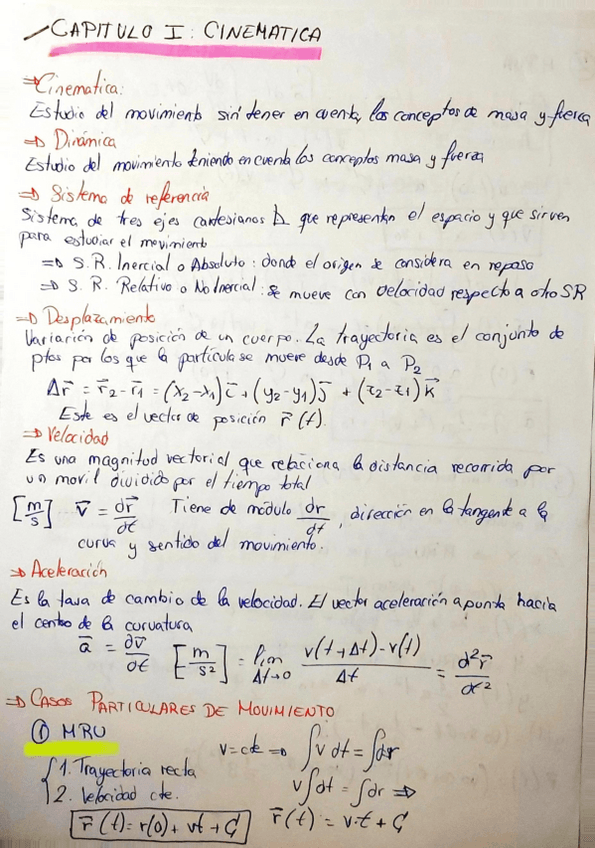 CAPITULO I: CINEMATICA
⇒ Cinematica:
Estudio del movimiento sin tener en cuenta, los conceptos de masa y fuerza
⇒ Dinámica
Estudio del movimiento teniendo en cuenta los conceptos masa y fuerza
⇒ Sistema de referencia
Sistema de tres ejes cartesianos que representan el espacio y que sirven
para estudiar el movimiento
⇒ S.R. Inercial o Absoluto: donde el origen se considera en reposo
⇒ S.R. Relativo o No Inercial: se mueve con velocidad respecto a otro SR
⇒ Desplazamiento
Variación de posición de un cuerpo. La trayectoria es el conjunto de
ptos por los que la partícula se mueve desde P₁ a P₂
Δr⃗ = r⃗₂ - r⃗₁ = (x₂-x₁)i⃗ + (y₂-y₁)j⃗ + (z₂-z₁)k⃗
Este es el vector de posición r⃗(t).
⇒ Velocidad
Es una magnitud vectorial que relaciona la distancia recorrida por
un movil dividido por el tiempo total
[m/s] v⃗ = dr⃗/dt Tiene de módulo dr/dt, dirección en la tangente a la
curva y sentido del movimiento.
⇒ Aceleración
Es la tasa de cambio de la velocidad. El vector aceleración apunta hacia
el centro de la curvatura
a⃗ = ∂v⃗/∂t [m/s²] = lim Δt→0 v(t+Δt)-v(t)/Δt = d²r⃗/dt²
⇒ CASOS PARTICULARES DE MOVIMIENTO
① MRU
1. Trayectoria recta
2. Velocidad cte.
v=cte ⇒ ∫v dt = ∫dr
v∫dt = ∫dr ⇒
r⃗(t) = v·t + C₁
r⃗(t) = r(0) + vt + C₁